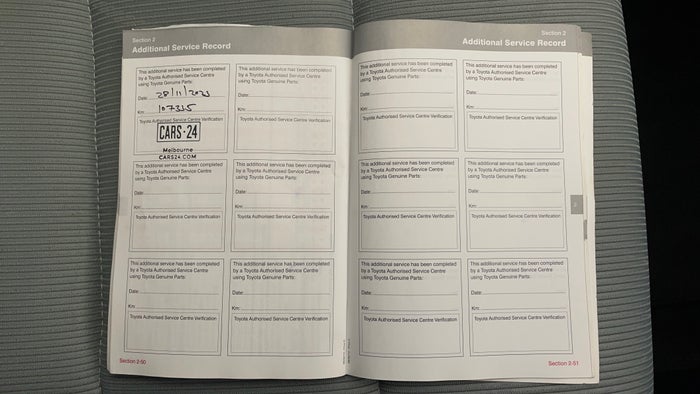 Section 2
Additional Service Record
This additional service has been completed
by a Toyota Authorised Service Centre
using Toyota Genuine Parts:
Date: 28/11/2023
Km: 107325
Toyota Authorised Service Centre Verification
CARS-24
Melbourne
CARS24.COM
This additional service has been completed
by a Toyota Authorised Service Centre
using Toyota Genuine Parts:
Date:
Km:
Toyota Authorised Service Centre Verification
This additional service has been completed
by a Toyota Authorised Service Centre
using Toyota Genuine Parts:
Date:
Km:
Toyota Authorised Service Centre Verification
This additional service has been completed
by a Toyota Authorised Service Centre
using Toyota Genuine Parts:
Date:
Km:
Toyota Authorised Service Centre Verification
This additional service has been completed
by a Toyota Authorised Service Centre
using Toyota Genuine Parts:
Date:
Km:
Toyota Authorised Service Centre Verification
This additional service has been completed
by a Toyota Authorised Service Centre
using Toyota Genuine Parts:
Date:
Km:
Toyota Authorised Service Centre Verification
Section 2-50
Section 2
Additional Service Record
This additional service has been completed
by a Toyota Authorised Service Centre
using Toyota Genuine Parts:
Date:
Km:
Toyota Authorised Service Centre Verification
This additional service has been completed
by a Toyota Authorised Service Centre
using Toyota Genuine Parts:
Date:
Km:
Toyota Authorised Service Centre Verification
This additional service has been completed
by a Toyota Authorised Service Centre
using Toyota Genuine Parts:
Date:
Km:
Toyota Authorised Service Centre Verification
This additional service has been completed
by a Toyota Authorised Service Centre
using Toyota Genuine Parts:
Date:
Km:
Toyota Authorised Service Centre Verification
This additional service has been completed
by a Toyota Authorised Service Centre
using Toyota Genuine Parts:
Date:
Km:
Toyota Authorised Service Centre Verification
This additional service has been completed
by a Toyota Authorised Service Centre
using Toyota Genuine Parts:
Date:
Km:
Toyota Authorised Service Centre Verification
Section 2-51